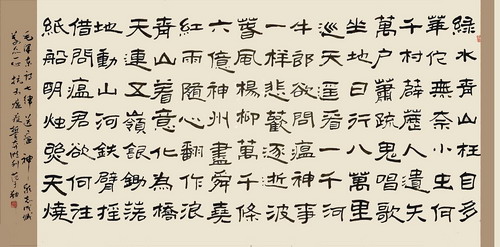 綠水青山枉自多
華佗無奈小虫何
千村薜荔人遺矢
萬户蕭疏鬼唱歌
坐地日行八萬里
巡天遥看一千河
牛郎欲問瘟神事
一樣悲歡逐逝波
春風楊柳萬千條
六億神州盡舜堯
紅雨隨心翻作浪
青山着意化為橋
天連五嶺銀鋤落
地動山河鐵臂摇
借問瘟君欲何往
紙船明烛照天燒
毛澤東詩七律送瘟神